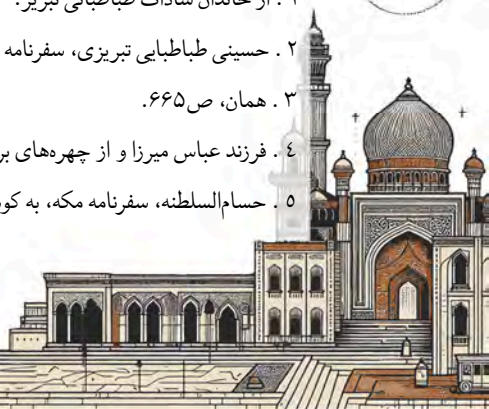 ۱ . از خاندان سادات طباطبائی تبریز.
۲ . حسینی طباطبایی تبریزی، سفرنامه
۳ . همان، ص۶۶۵.
٤ . فرزند عباس میرزا و از چهره‌های
٥ . حسام‌السلطنه، سفرنامه مکه، به